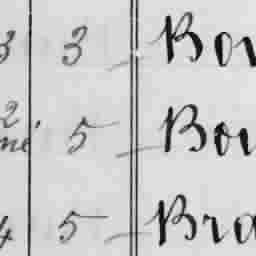 3 3 Bou
2
né 5 Bou
4 5 Bra